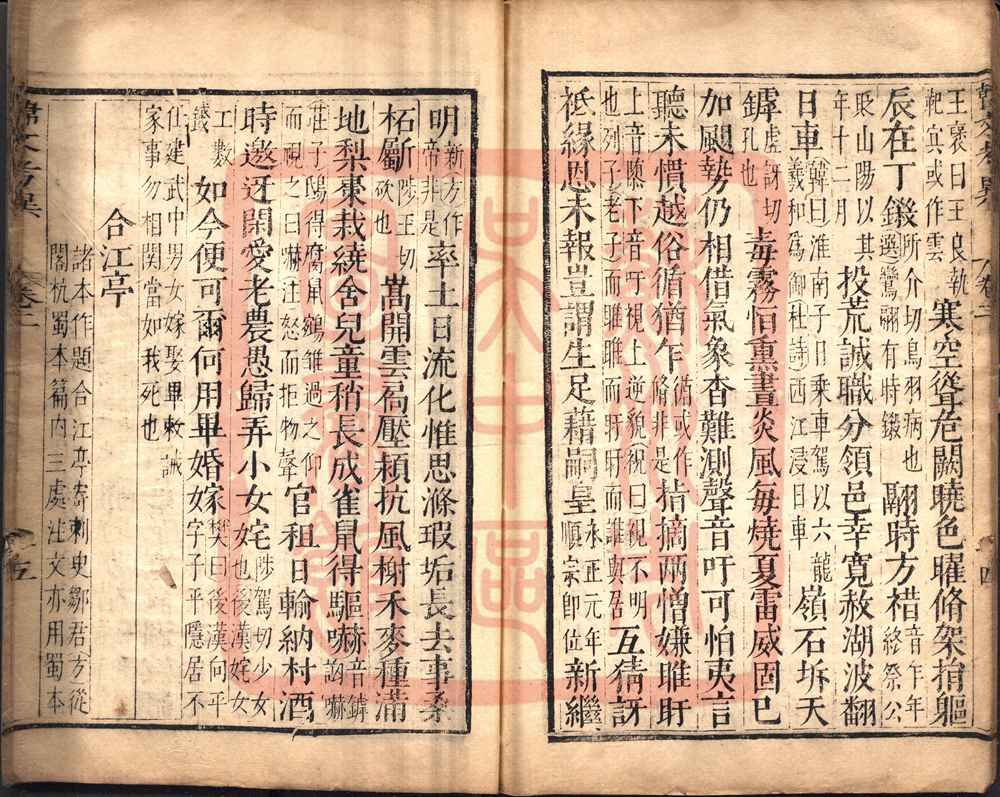 韓文考異 卷二 四
王褎曰王良執靶賓或作雲 寒空聳危闕曉色曜脩架捐軀
辰在丁鎩所介切鳥羽病也選鸞翮有時鎩翮時方䄍音乍年終祭公
取山陽以其年十二月 投荒誠職分領邑幸寬赦湖波翻
日車韓曰淮南子日乘車駕以六龍羲和為御杜詩西江浸日車 嶺石坼天
罅虛訝切孔也 毒霧恒熏晝炎風每燒夏雷威固已
加颶勢仍相借氣象杳難測聲音吁可怕夷言
聽未慣越俗循猶乍循或作脩非是指摘兩憎嫌睢盱
上音隳下音吁視上逆貌祝曰不明也列子老子而睢睢而盱盱而誰與居互猜訝
祗緣恩未報豈謂生足藉嗣皇永正元年順宗即位新繼
明新方作帝非是率土日流化惟思滌瑕垢長去事桑
柘斸陟玉切砍也嵩開雲扃壓潁抗風榭禾麥種滿
地梨棗栽繞舍兒童稍長成雀鼠得驅嚇音罅嚇
莊子鴟得腐鼠鵷雛過之仰而視之曰嚇注怒而拒物聲官租日輸納村酒
時邀迓閑愛老農愚歸弄小女姹陟駕切少女女也後漢姹女
工數錢 如今便可爾何用畢婚嫁樊曰後漢向平字子平隱居不
仕建武中男女嫁娶畢敕誡家事勿相關當如我死也
合江亭諸本作題合江亭寄刺史鄒君方從閣杭蜀本篇內三處注文亦用蜀本
韓文考異 卷二 五